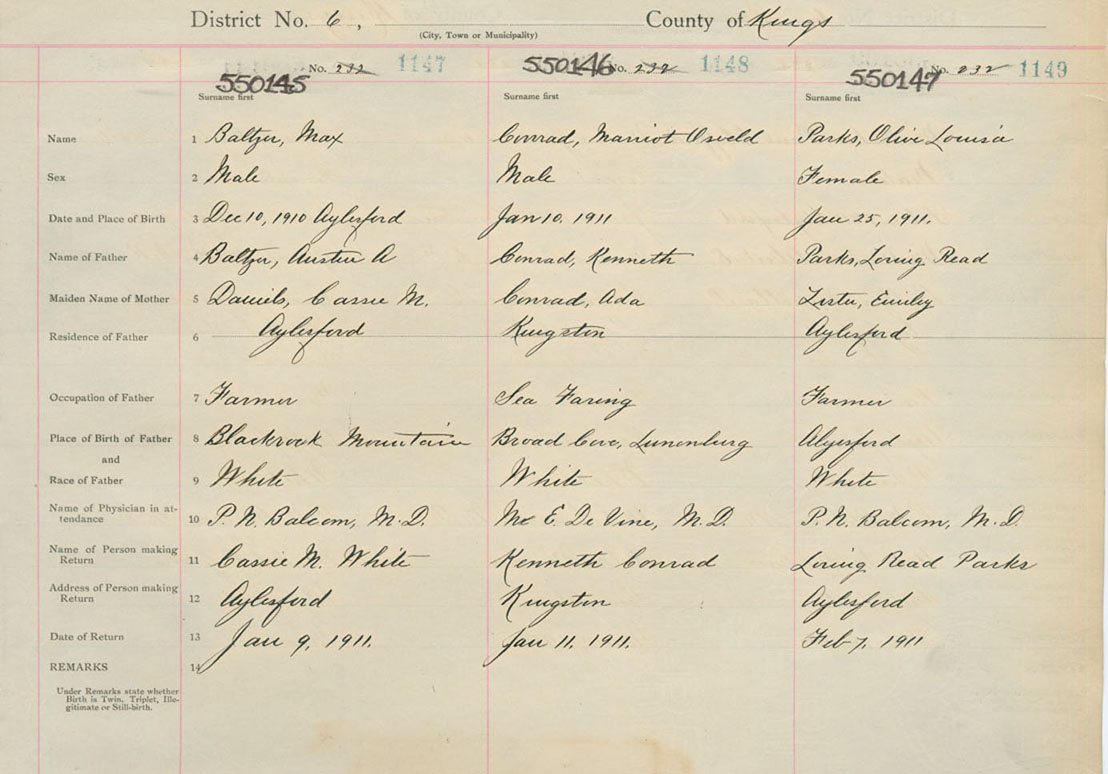 District No. 6, County of Kings
(City, Town or Municipality)
550145 No. 232 1147 550146 No. 232 1148 550147 No. 232 1149
Surname first Surname first Surname first
Name 1 Baltzer, Max Conrad, Marriot Osveld Parks, Olive Louisa
Sex 2 Male Male Female
Date and Place of Birth 3 Dec 10, 1910 Aylesford Jan 10. 1911 Jan 25, 1911.
Name of Father 4 Baltzer, Austin A Conrad, Kenneth Parks, Loring Read
Maiden Name of Mother 5 Daniels, Cassie M. Conrad, Ada Emiley
Residence of Father 6 Aylesford Kingston Aylesford
Occupation of Father 7 Farmer Sea Faring Farmer
Place of Birth of Father 8 Blackrock Mountain Broad Cove, Lunenburg Alyesford
and
Race of Father 9 White White White
Name of Physician in at-
tendance 10 P. N. Balcom, M.D. E. De Vine, M.D. P. N. Balcom, M.D.
Name of Person making
Return 11 Cassie M. White Kenneth Conrad Loring Read Parks
Address of Person making
Return 12 Aylesford Kingston Aylesford
Date of Return 13 Jan 9, 1911. Jan 11, 1911. Feb 7, 1911
REMARKS 14
Under Remarks state whether
Birth is Twin. Triplet, Ille-
gitimate or Still-birth.